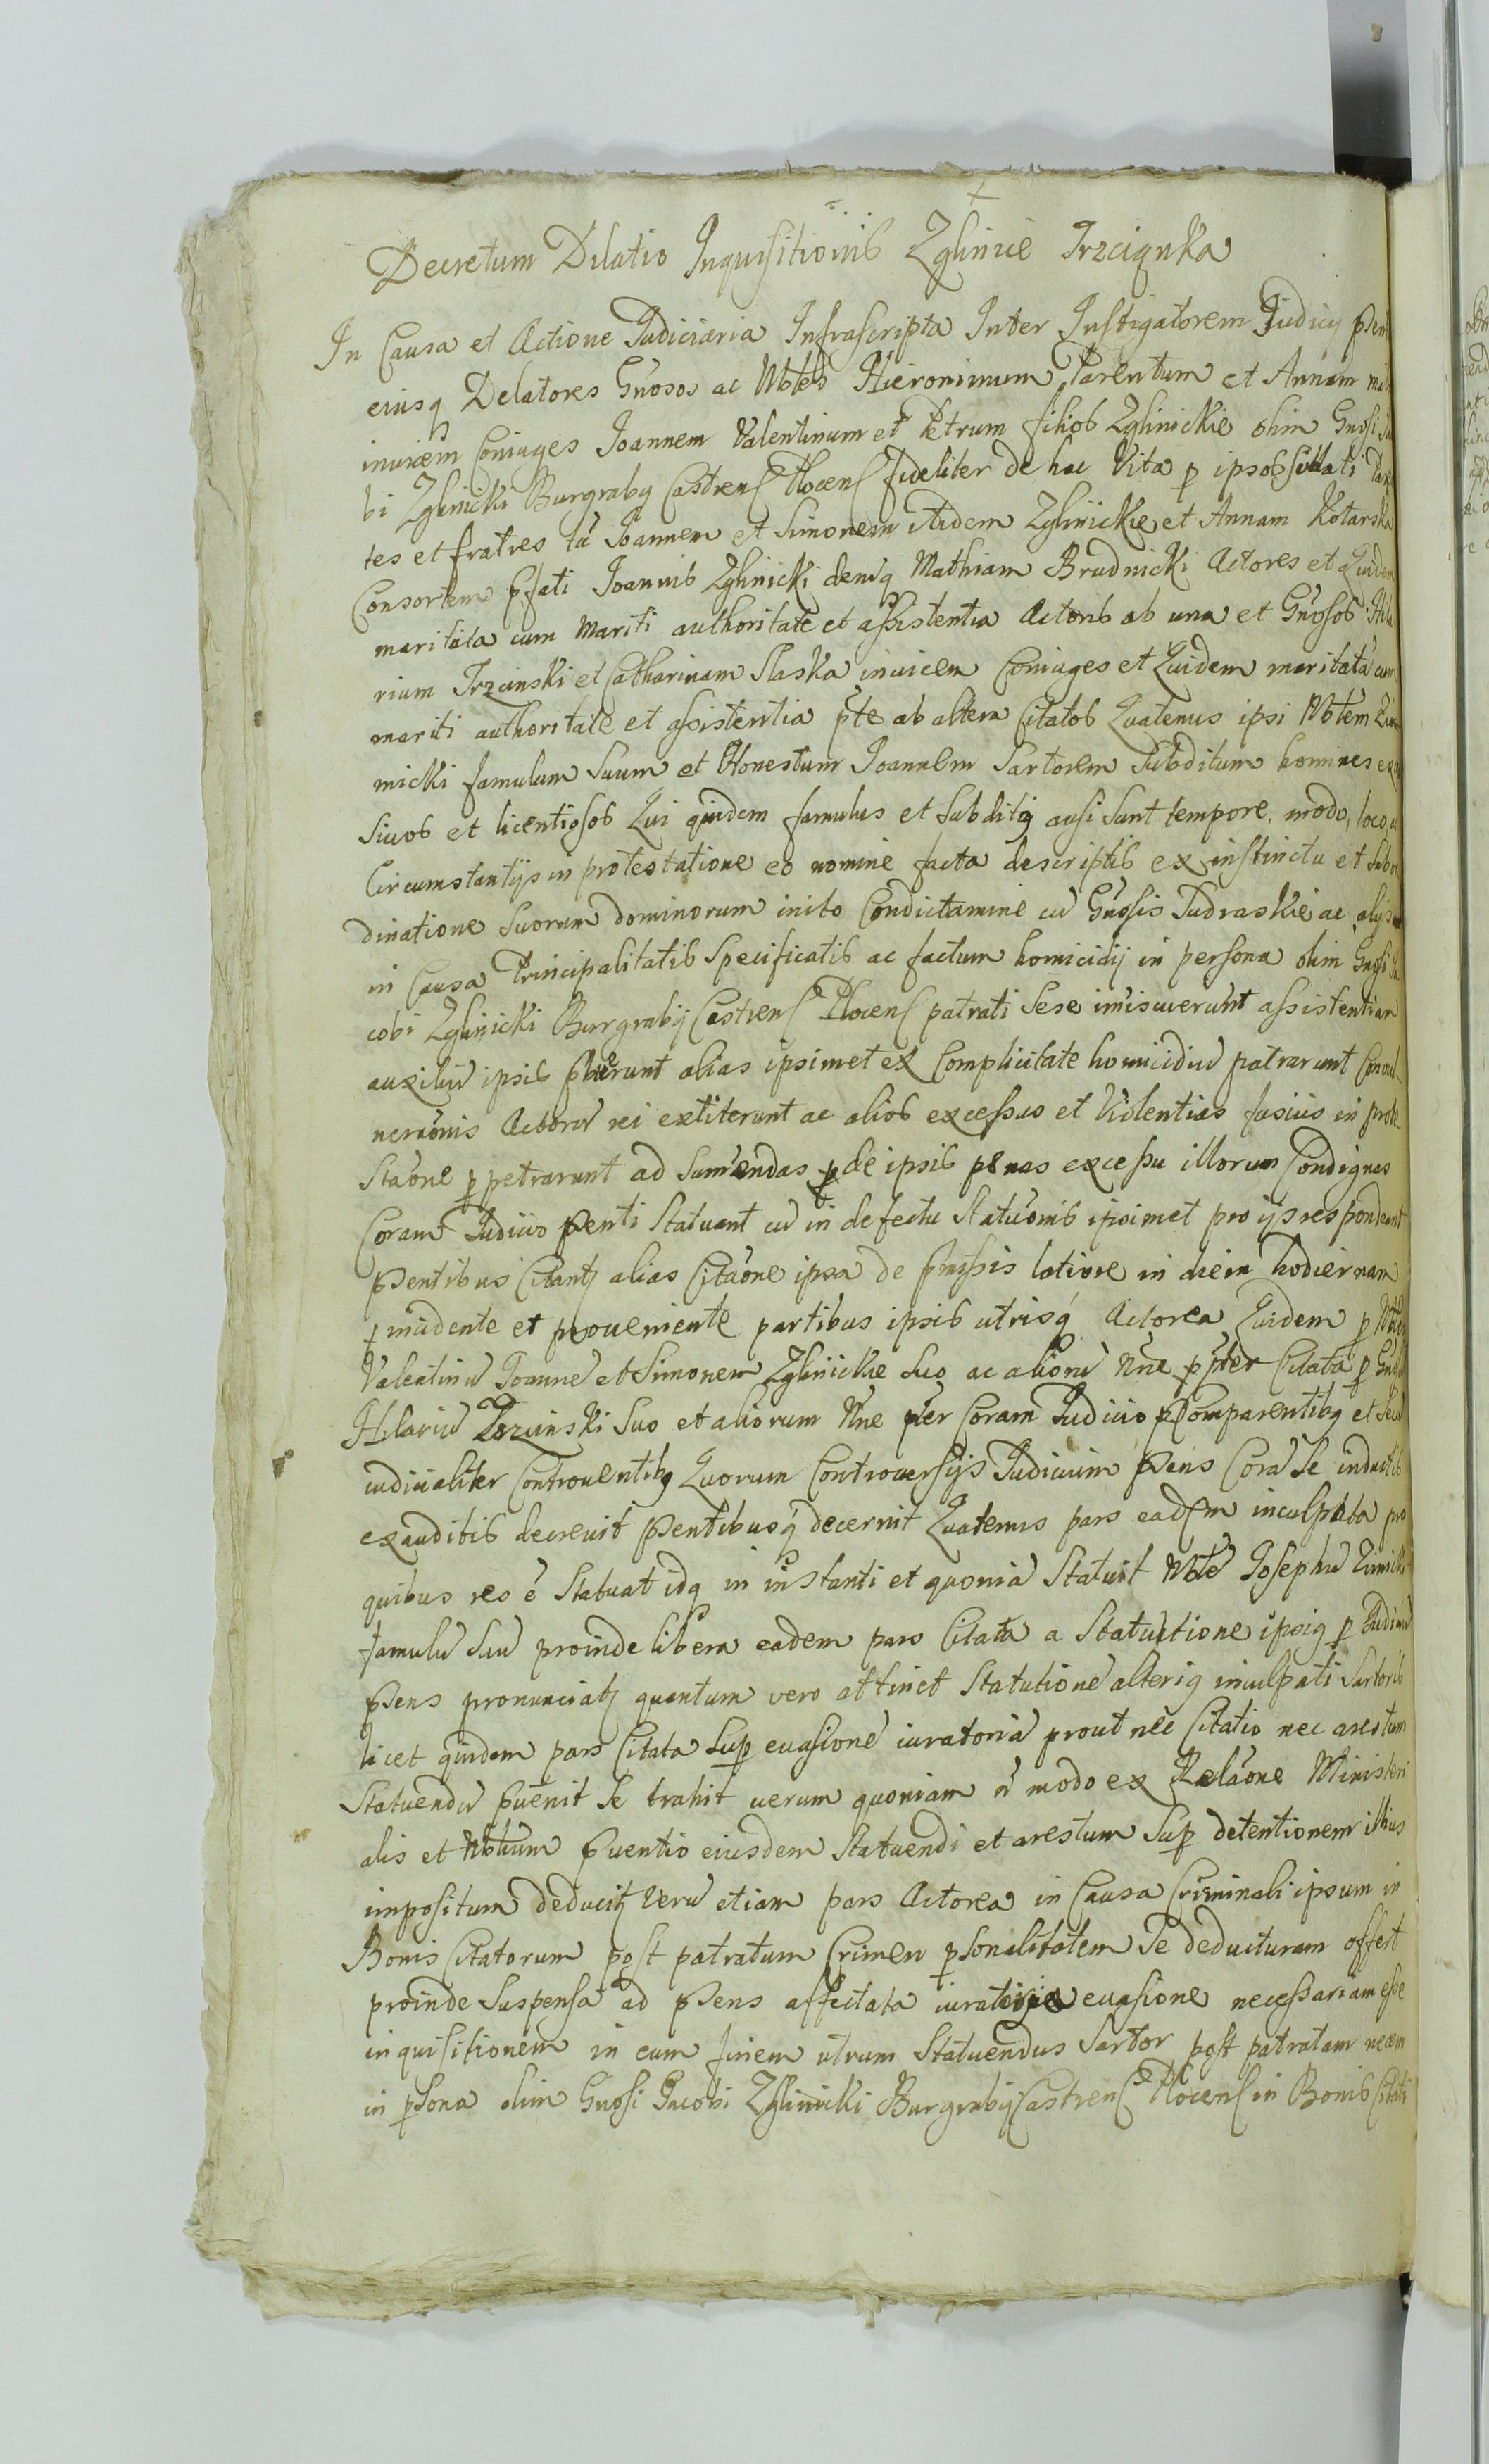 Decretum Dilatio Inquisitionis Zglinicė Trzcięnka
In Causa et Actione Judiciaria Infrascripta Inter Instigatorem Judicy pñtis
eiusq Delatores Gnosos ac Nobles Hieronimum Parentum et Annam
inuicem Coniuges Joannem Valentinum et Petrum filios Zglinickie olim Gnosi
bi Zglinicki Burgraby Castrenſ Plocenſ fideliter de hac Vita p ipsos sublati
tes et fratres tũ Joannem et Simonem itidem Zglinickie et Annam Kotarska
Consortem pfati Joannis Zglinicki deniq Mathiam Brudnicki Actores et Quidem
maritata cum Mariti authoritate et aſsistentia Actoris ab una et Gnosos Hila
rium Trzcinski et Catharinam Slaska inuicem Coniuges et Quidem maritatã cum
mariti authoritate et aſsistentia pte ab altera Citatos Quatenus ipsi Noblem
micki famulum Suum et Honestum Joannem Sartorem Subditum homines
siuos et licentiosos Qui quidem famulus et Subditq ausi sunt tempore, modo, loco,
Circumstantijs in protestatione eo nomine facta descriptis ex instinctu et Subor
dinatione Suorum dominorum inito Condictamine cũ Gnosis Sudraskie ac alijs
in Causa Principalitatis Specificatis ac factum homicidij in persona olim Gnosi Ja
cobi Zglinicki Burgrabij Castrenſ Plocenſ patrati Sese imiscuerunt aſsistentiam
auxiliũ ipsis pbuerunt alias ipsimet ex Complicitate homicidiũ patrarunt Conuul
neraõnis Actorũ rei extiterunt ac alios exceſsus et Violentias fusius in prote
staõne p petrarunt ad Sumendas de ipsis penas exceſsu illorum Condignas
Coram Judicio pñti Statuant cũ in defectu Statuõnis ipsimet pro ijs respondeant
pñtibus Citantʒ alias Citaõne ipsa de pmiſsis latiore in diem hodiernam
incidente et proueniente partibus ipsis utrisq Actorea Quidem p Nobles
Valentinũ Joannẽ et Simonem Zglinickie suo ac aliorũ Nñe pter Citata p Gnosũ
Hilariũ Trzcinski Suo et aliorum Nñe pter Coram Judicio Comparentibq et Secũ
iudicialiter Controuentibq Quorum Controuersijs Judicium pñs Corã Se inductis
exauditis decreuit pñtibusq decernit Quatenus pars eadem inculpata pro
quibus res ẽ Statuat idq in instanti et quoniã Statuit Noblẽ Josephũ
famulũ Suũ proinde libera eadem pars Citata a Statuitione ipsiq p Judiciũ
pñs pronunciatʒ quantum vero attinet Statutionẽ alteriq inculpati Sartoris
licet quidem pars Citata Sup euasionẽ iuratoriã prout nec Citatio nec arestum
Statuendũ pueñit Se trahit uerum quoniam ñ modo ex Relaõne Ministeri
alis et Nobilium puentio eiusdem Statuendi et arestum Sup detentionem illius
impositum deducitʒ Verũ etiam pars Actorea in Causa Criminali ipsum in
Bonis Citatorum post patratum Crimen psonalitatem Se deducturam offert
proinde Suspensa ad pñs affectata iuratoria euasione necessariam eſse
inquisitionem in eum finem utrum Statuendus Sartor post patratam necem
in psona olim Gnosi Jacobi Zglinicki Burgrabij Castrenſ Plocenſ in Bonis Citati